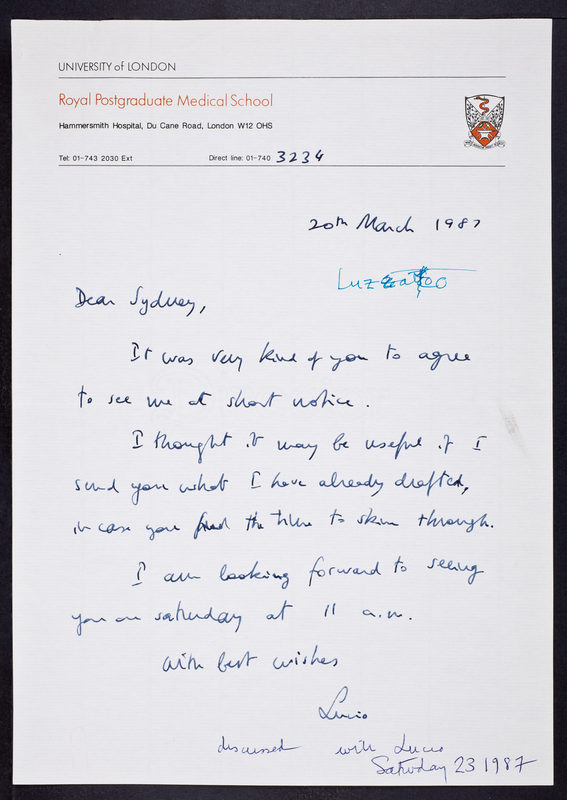 UNIVERSITY of LONDON
Royal Postgraduate Medical School
Hammersmith Hospital, Du Cane Road, London W12 OHS
Tel: 01-743 2030 Ext Direct line: 01-740 3234
20th March 1987
Dear Sydney,
It was very kind of you to agree
to see me at short notice.
I thought it may be useful if I
send you what I have already drafted,
in case you find the time to skim through.
I am looking forward to seeing
you on saturday at 11 a.m.
with best wishes
Lucio
discussed with Lucio
Saturday 23 1987